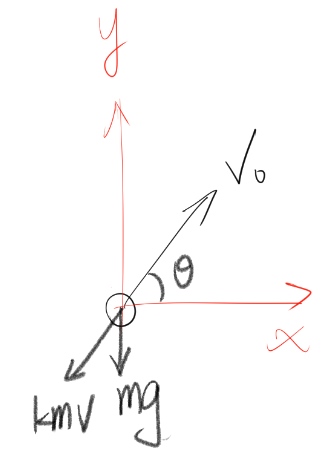 y
V₀
θ
x
kmv mg